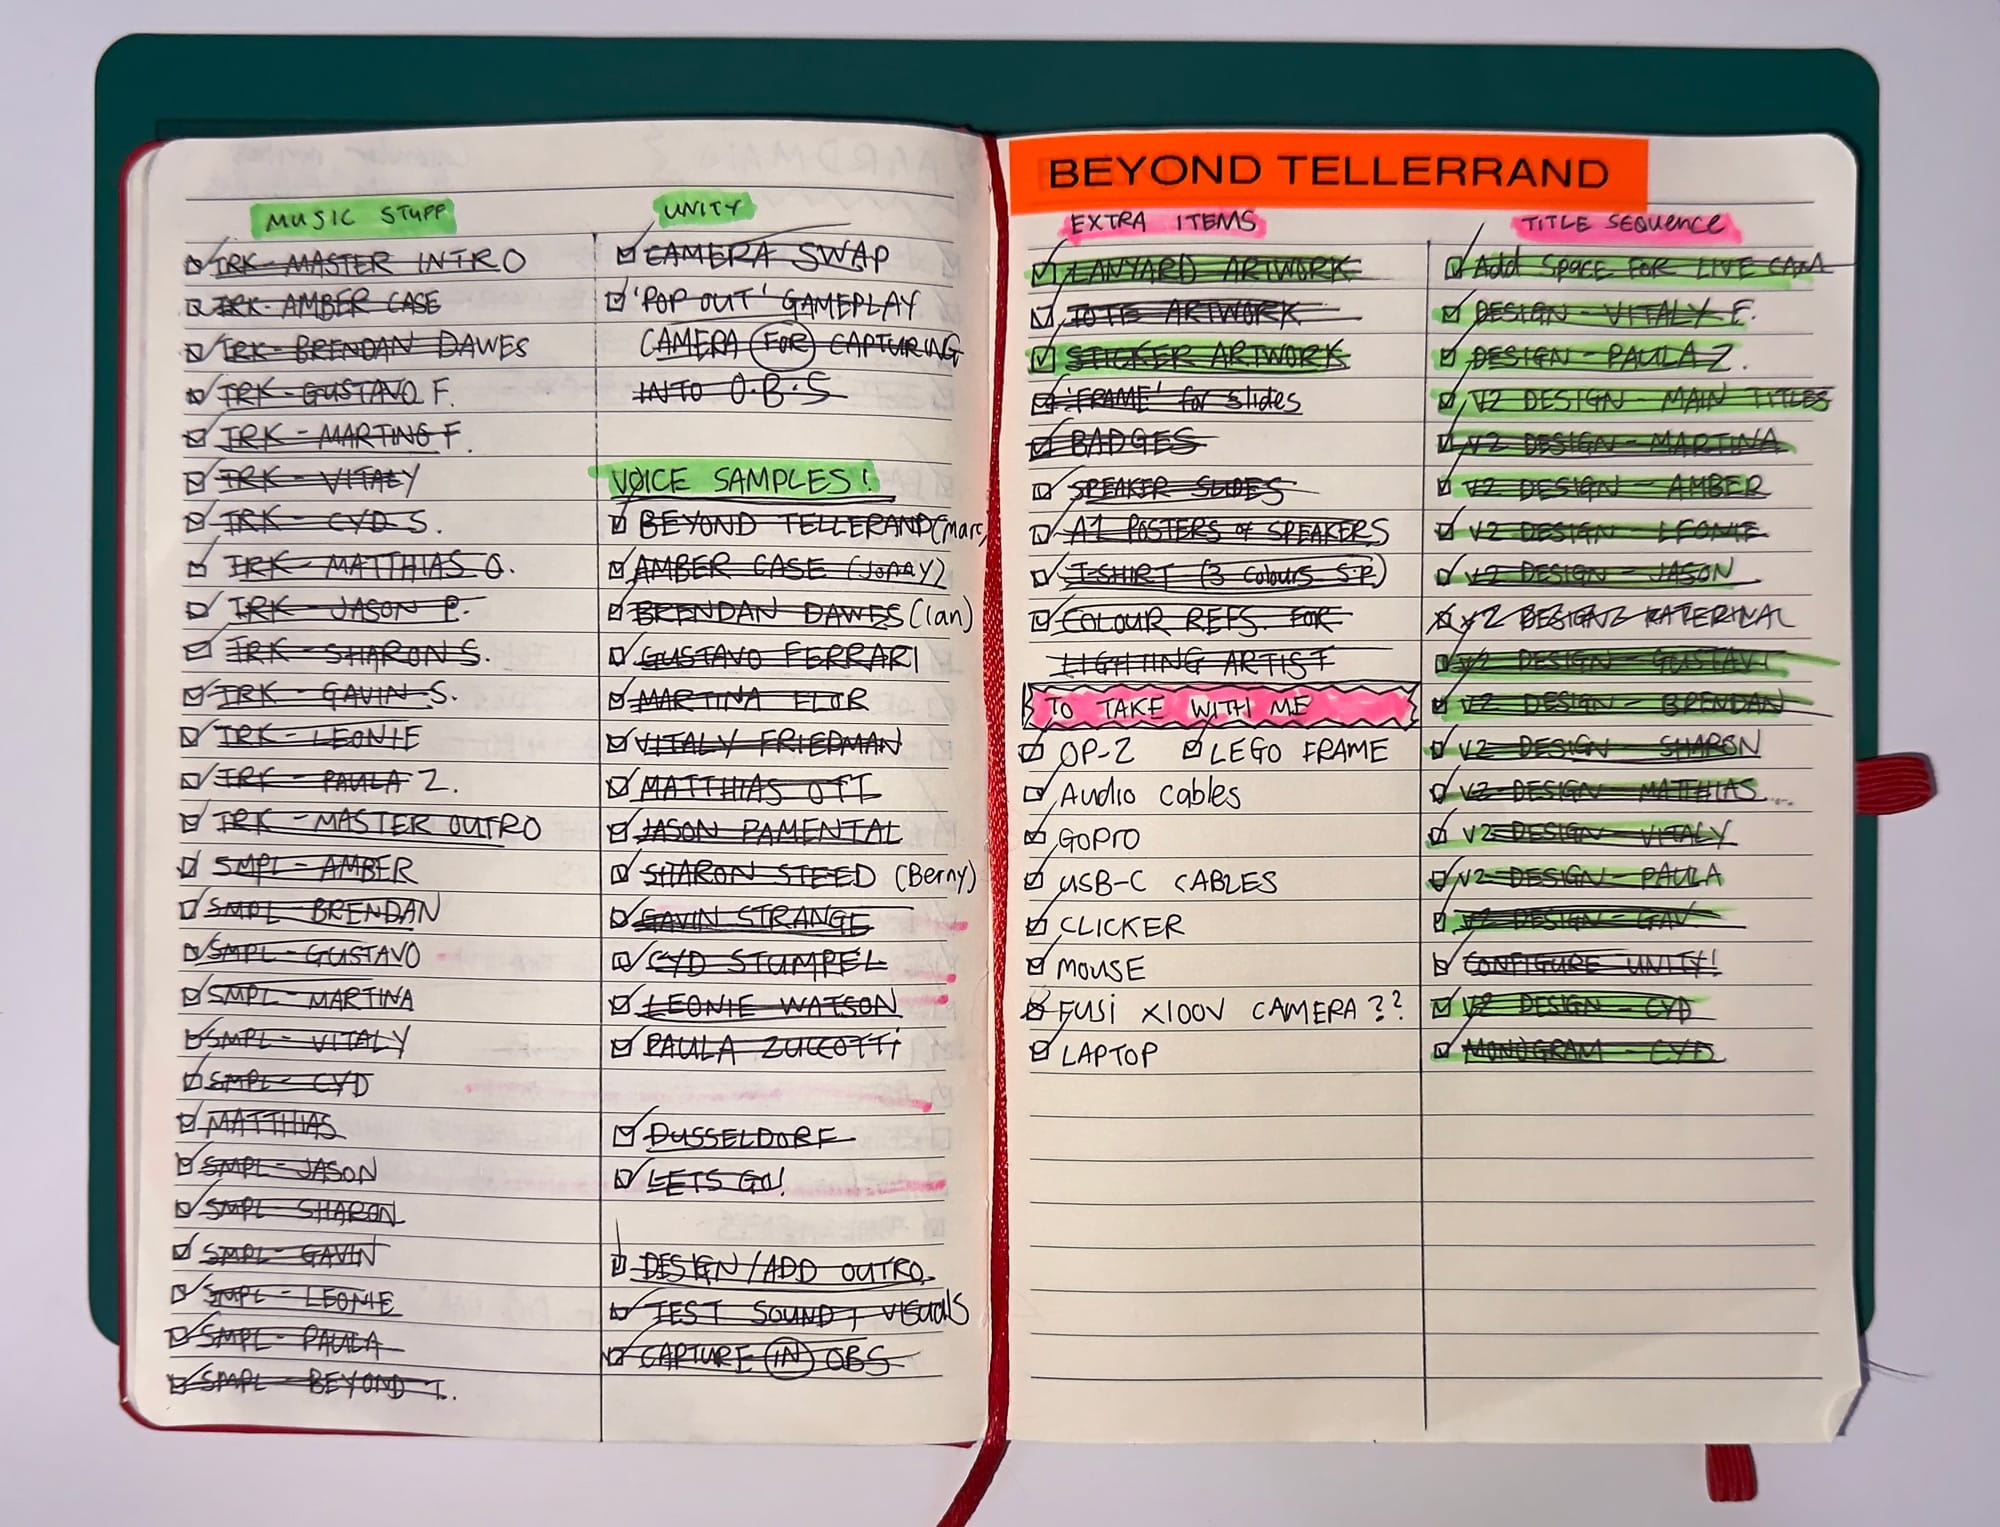 MUSIC STUFF
TRK - MASTER INTRO
TRK - AMBER CASE
TRK - BRENDAN DAWES
TRK - GUSTAVO F.
TRK - MARTINA F.
TRK - VITALY
TRK - CYD S.
TRK - MATTHIAS O.
TRK - JASON P.
TRK - SHARON S.
TRK - GAVIN S.
TRK - LEONIE
TRK - PAULA Z.
TRK - MASTER OUTRO
SMPL - AMBER
SMPL - BRENDAN
SMPL - GUSTAVO
SMPL - MARTINA
SMPL - VITALY
SMPL - CYD
MATTHIAS
SMPL - JASON
SMPL - SHARON
SMPL - GAVIN
SMPL - LEONIE
SMPL - PAULA
SMPL - BEYOND T.
UNITY
CAMERA SWAP
'POP OUT' GAMEPLAY
CAMERA FOR CAPTURING
INTO O.B.S
VOICE SAMPLES!
BEYOND TELLERAND (Marc)
AMBER CASE
BRENDAN DAWES (Ian)
GUSTAVO FERRARI
MARTINA FLOR
VITALY FRIEDMAN
MATTHIAS OTT
JASON PAMENTAL
SHARON STEED (Berny)
GAVIN STRANGE
CYD STUMPEL
LEONIE WATSON
PAULA ZUCCOTTI
DUSSELDORF
LETS GO!
DESIGN/ADD OUTRO
TEST SOUND + VISUALS
CAPTURE IN OBS
BEYOND TELLERRAND
EXTRA ITEMS
LANYARD ARTWORK
TOTE ARTWORK
STICKER ARTWORK
'FRAME' for slides
BADGES
SPEAKER SLIDES
A1 POSTERS of SPEAKERS
T-SHIRT (3 colours S.P.)
COLOUR REFS. FOR
LIGHTING ARTIST
TO TAKE WITH ME
OP-Z LEGO FRAME
Audio cables
GOPRO
USB-C CABLES
CLICKER
MOUSE
FUSI X100V CAMERA??
LAPTOP
TITLE SEQUENCE
Add SPACE FOR LIVE CAM
DESIGN - VITALY F.
DESIGN - PAULA Z.
V2 DESIGN - MAIN TITLES
V2 DESIGN - MARTINA
V2 DESIGN - AMBER
V2 DESIGN - LEONIE
V2 DESIGN - JASON
V2 DESIGN
V2 DESIGN - GUSTAV
V2 DESIGN - BRENDAN
V2 DESIGN - SHARON
V2 DESIGN - MATTHIAS...
V2 DESIGN - VITALY
V2 DESIGN - PAULA
V2 DESIGN - GAV
CONFIGURE UNITY!
V2 DESIGN - CYD
MONOGRAM - CYD